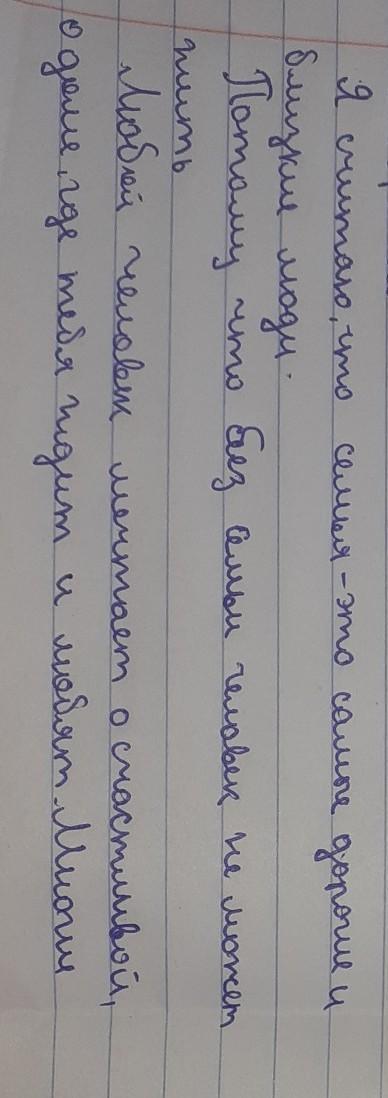 Я считаю, что семья - это самые дорогие и
близкие люди.
Потому что без семьи человек не может
жить
Любой человек мечтает о счастливой,
о доме, где тебя ждут и любят. Многие